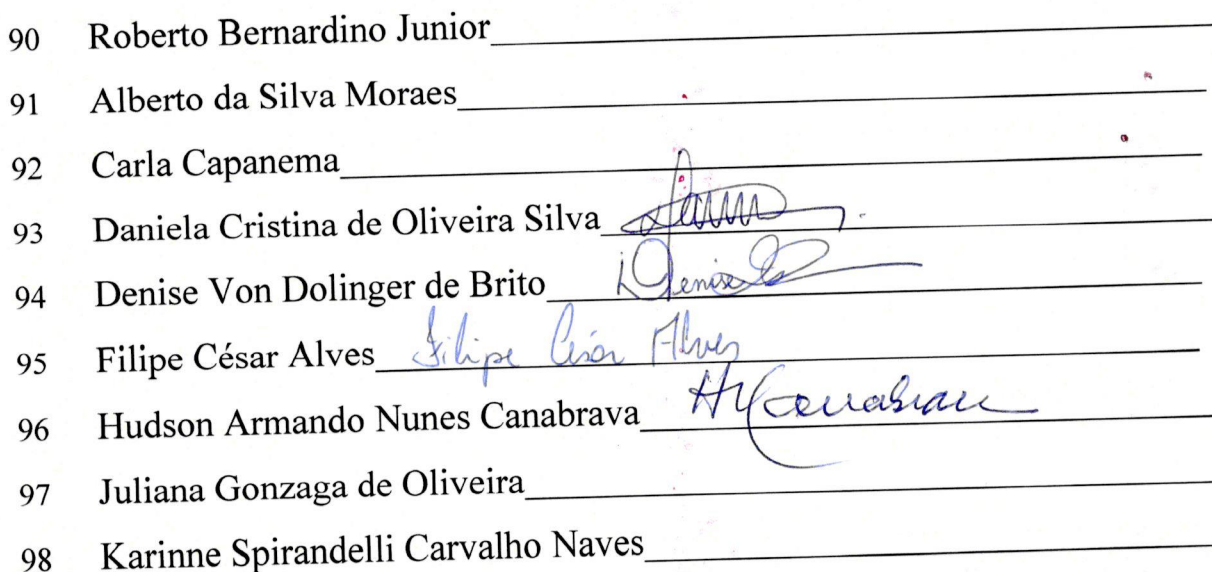 90 Roberto Bernardino Junior
91 Alberto da Silva Moraes
92 Carla Capanema
93 Daniela Cristina de Oliveira Silva
94 Denise Von Dolinger de Brito Denise
95 Filipe César Alves Filipe César Alves
96 Hudson Armando Nunes Canabrava
97 Juliana Gonzaga de Oliveira
98 Karinne Spirandelli Carvalho Naves